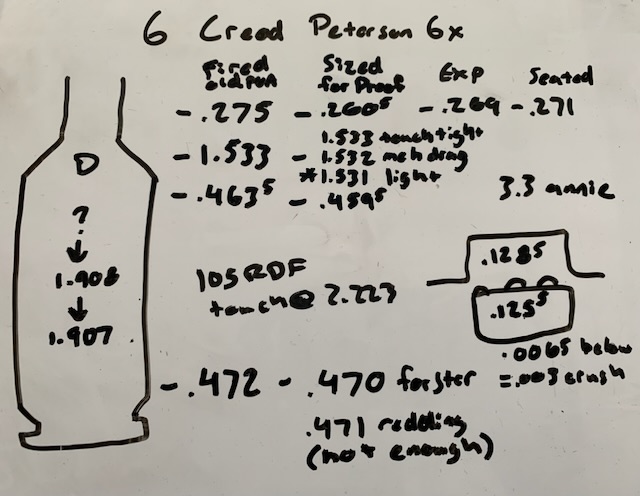 6 Creed Peterson 6x
Fired oldrun
Sized for Proof
Exp
Seated
- .275 - .260⁵ - .269 - .271
- 1.533 - 1.533 touch tight
1.532 meh drag
*1.531 light
- .463⁵ - .459⁵
3.3 annie
D
?
1.908
1.907
105 RDF
touch @ 2.223
.1285
.125⁵
.0065 below
= .003 crush
- .472 - .470 forster
.471 redding
(not enough)